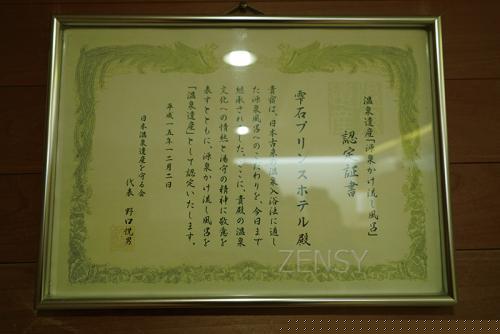 温泉遺産「源泉かけ流し風呂」
認定証書
雫石プリンスホテル殿
貴宿は、日本古来の温泉入浴法に適し
た源泉風呂へのこだわりを、今日まで
継承されました。ここに、貴殿の温泉
文化への情熱と湯守の精神に敬意を
表すとともに、源泉かけ流し風呂を
「温泉遺産」として認定いたします。
平成一五年一二月二日
日本温泉遺産を守る会
代表 野口悦男
ZENSY